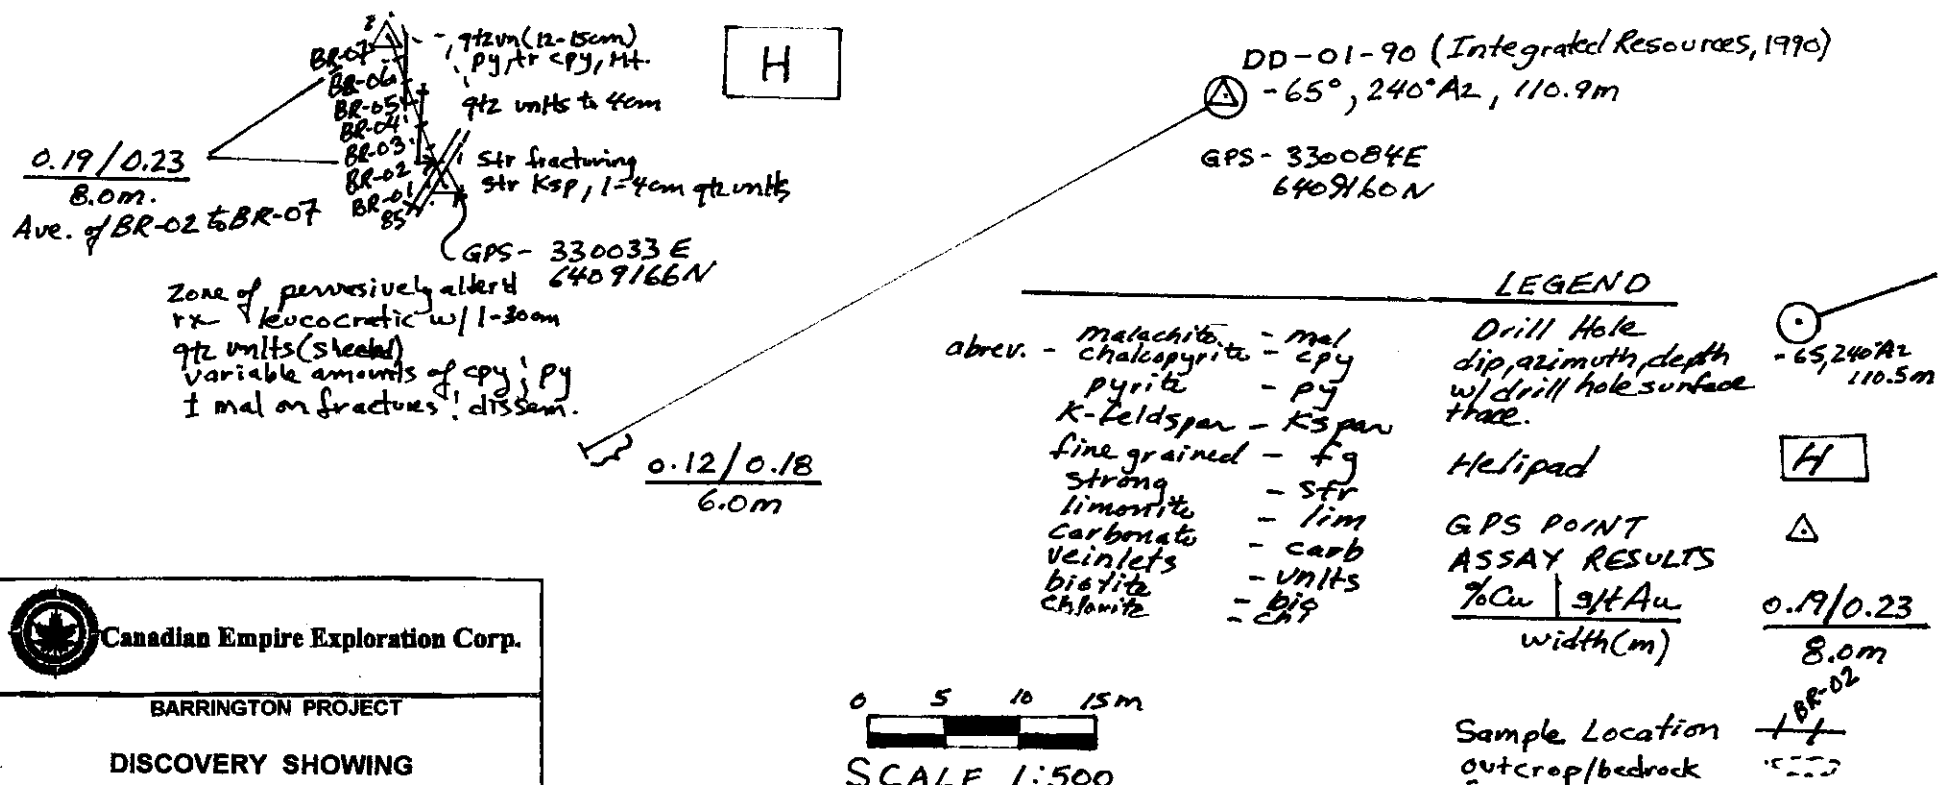 BR-07
BR-06
BR-05
BR-04
BR-03
BR-02
BR-01
85
qtzvn(12-15cm)
py, tr cpy, Mt.
qtz vnlts to 4cm
str fracturing
str Ksp, 1-4cm qtz vnlts
H
0.19/0.23
8.0m.
Ave. of BR-02 to BR-07
GPS- 330033E
6409166N
Zone of pervasively alter'd
rx leucocratic w/ 1-30cm
qtz vnlts (sheeted)
variable amounts of cpy; py
± mal on fractures; dissem.
DD-01-90 (Integrated Resources, 1990)
-65°, 240°Az, 110.9m
GPS- 330084E
6409160N
0.12/0.18
6.0m
LEGEND
abrev. - malachite - mal
chalcopyrite - cpy
pyrite - py
K-feldspar - Kspar
fine grained - fg
strong - str
limonite - lim
carbonate - carb
veinlets - vnlts
biotite - bio
chlorite - chl
Drill Hole
dip, azimuth, depth
w/ drill hole surface
trace.
-65, 240°Az
110.5m
Helipad
H
GPS POINT
ASSAY RESULTS
%Cu | g/t Au
width(m)
0.19/0.23
8.0m
Sample Location
BR-02
outcrop/bedrock
Canadian Empire Exploration Corp.
BARRINGTON PROJECT
DISCOVERY SHOWING
0 5 10 15m
SCALE 1:500